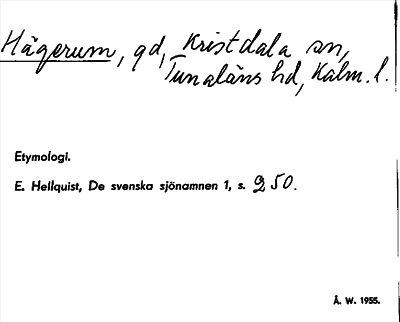 Hägerum, gd, Kristdala sn,
Tunaläns hd, Kalm. l.
Etymologi.
E. Hellquist, De svenska sjönamnen 1, s. 250.
Å. W. 1955.